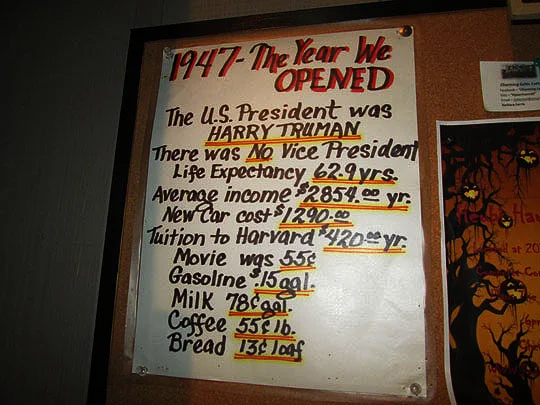 1947- The Year We
OPENED
The U.S. President was
HARRY TRUMAN
There was NO Vice President
Life Expectancy 62.9 yrs.
Average income $2854.00 yr.
New Car cost $1290.00
Tuition to Harvard $420.00 yr.
Movie was 55¢
Gasoline $.15 gal.
Milk 78¢ gal.
Coffee 55¢ lb.
Bread 13¢ loaf